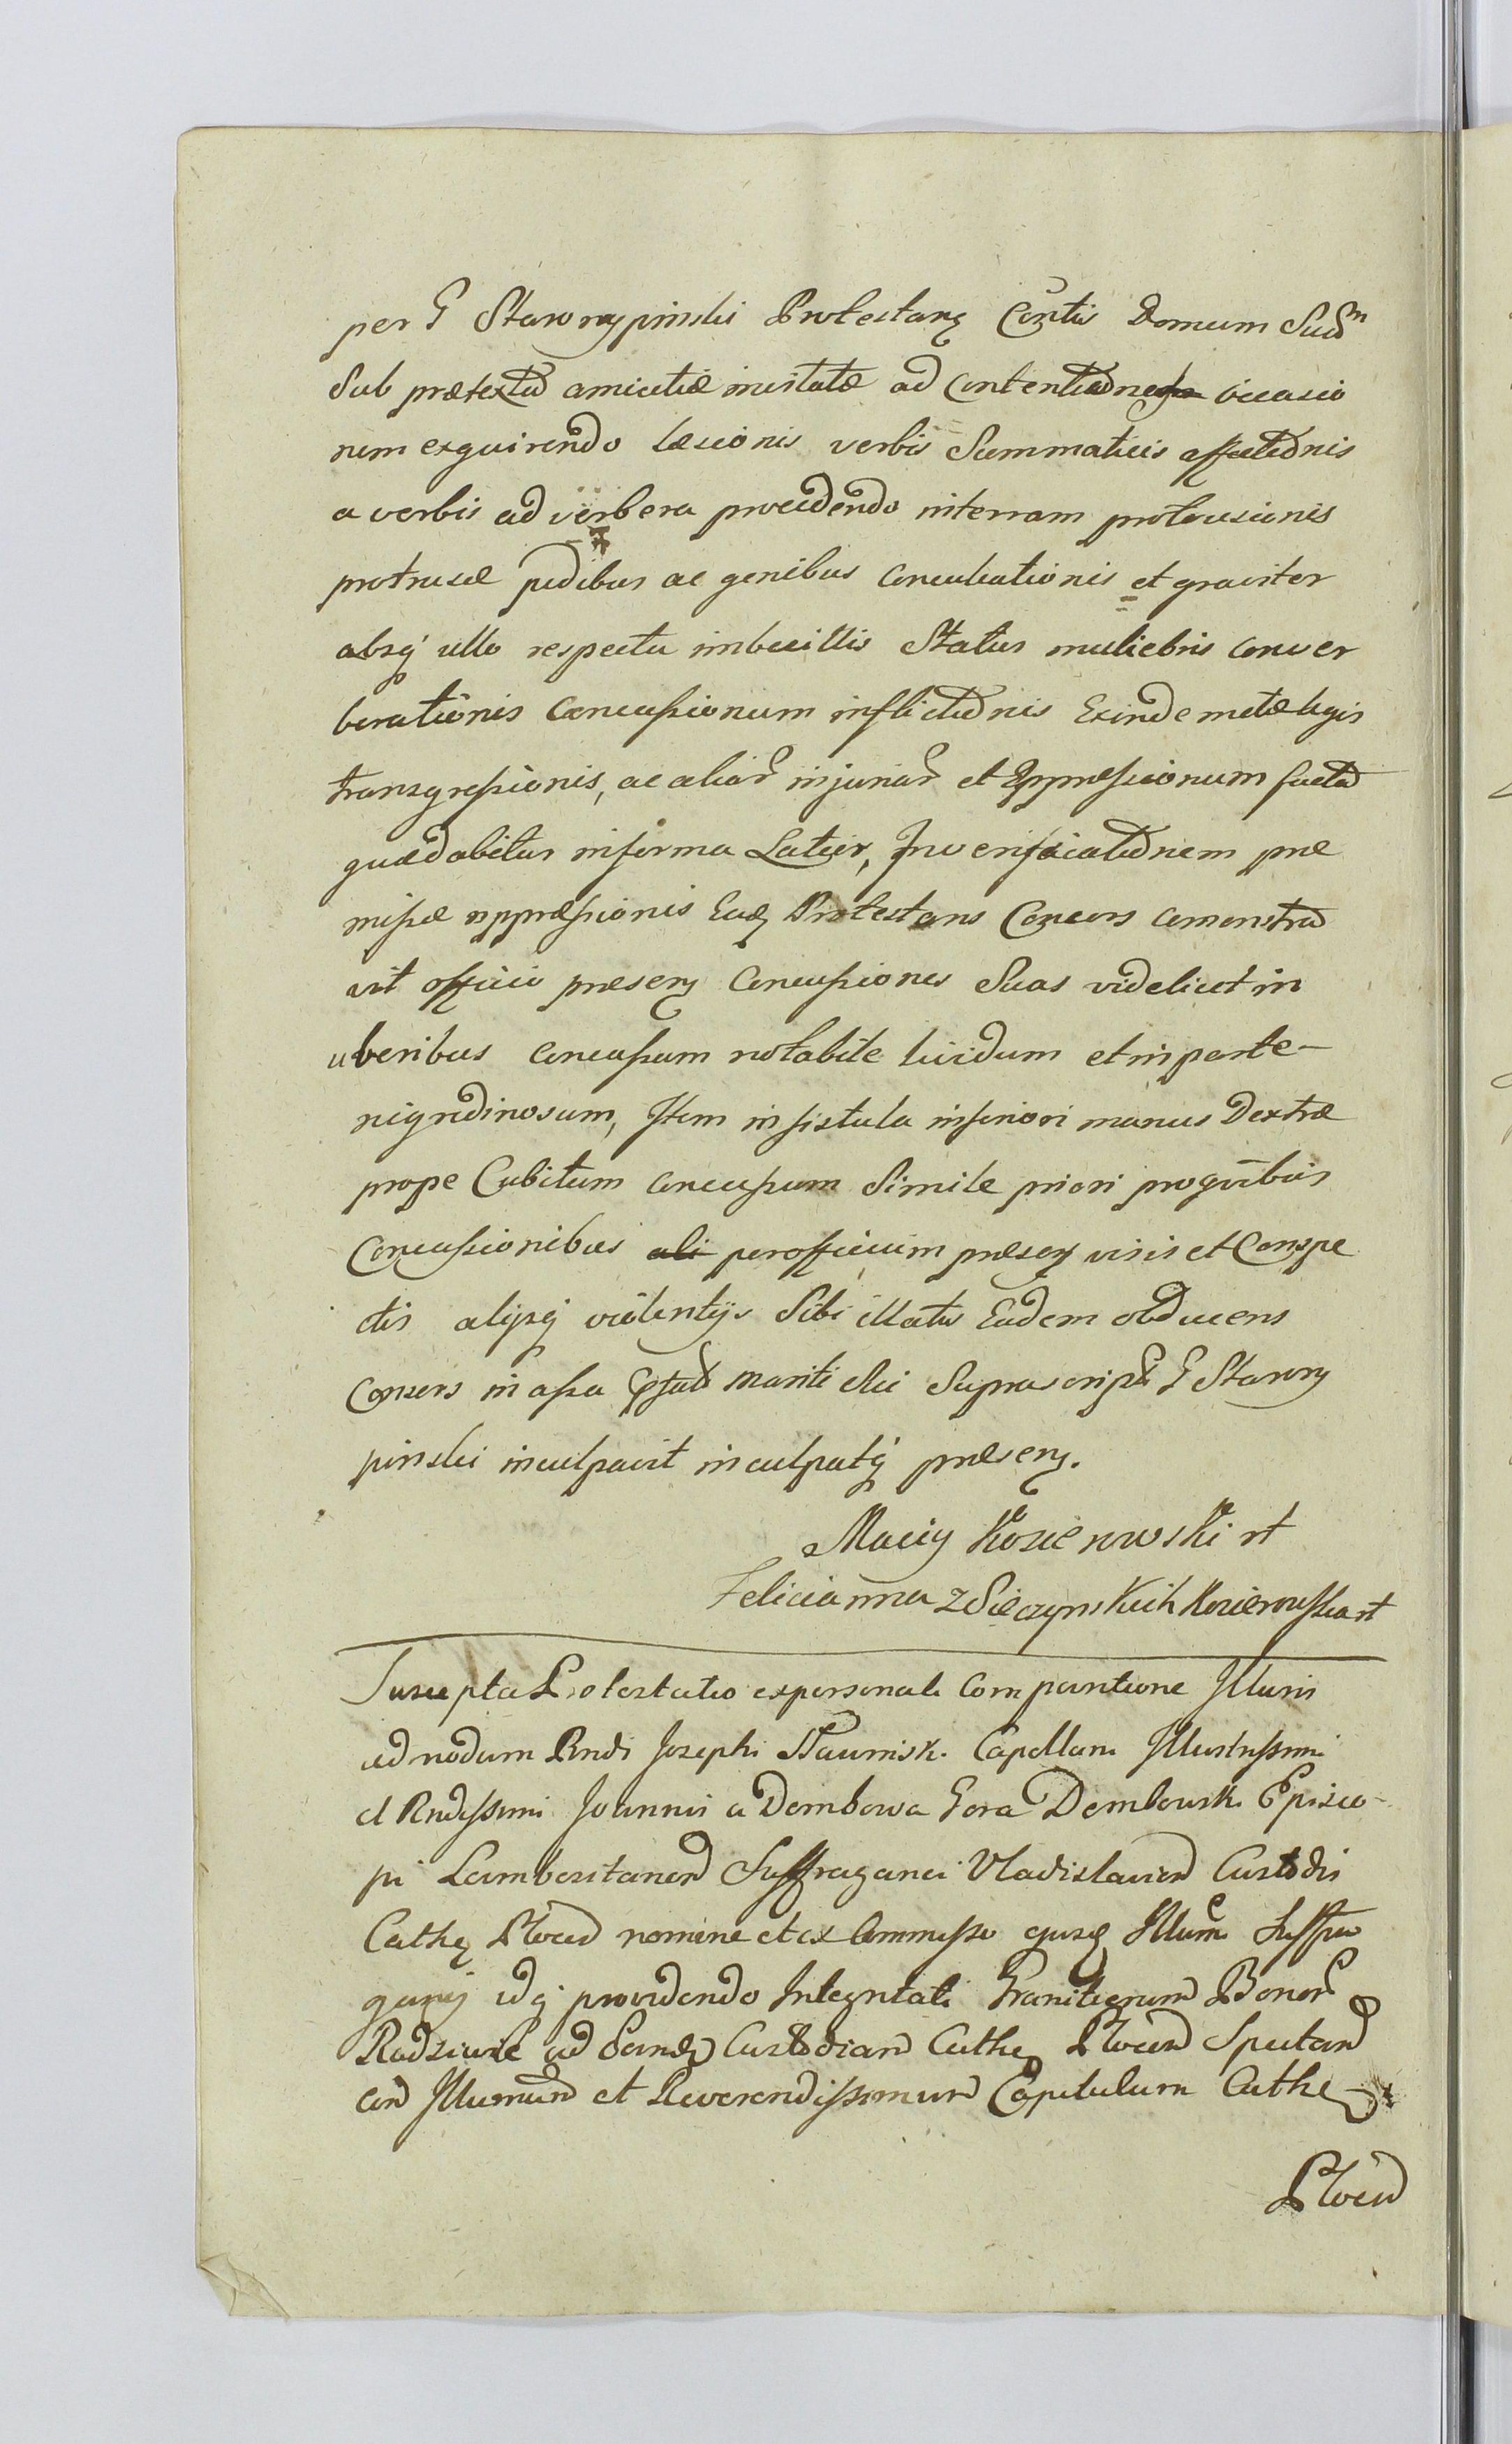 per G Staworzypinski Protestanӡ Conƶtis Domum Suam
Sub prætextu amicitiæ invitatæ ad Contentione occasio
nem exquirendo læsionis verbis Summaticis affectionis
a verbis ad verbera procedendo interram protrusionis
protrusæ pedibus ac genibus Conculcationis et graviter
absq ullo respectu imbecillis Status muliebris conver
berationis Concussionum inflictionis Exinde metæ legis
transgressionis, ac aliar injuriar et Oppressionum facta
quædabitur informa Latior, Inverificationem præ
missæ oppræssionis Eadӡ Protestans Consors comonstra
vit officio præsenӡ Concussiones Suas videlicet in
uberibus Concussum notabile lividum et in parte
nigredinosum, Item in fistula inferiori manus Dextræ
prope Cubitum Concussum Simile priori proquibus
Concussionibus ali perofficium præsenӡ visis et Conspe
ctis alijsq violentijs Sibi illatis Eadem obducens
Consors in assa mariti Sui Suprascript G Starorzy
pinski inculpavit inculpatq præsenӡ.
Maciy Kozierowski rt
Felicianna z Sieczynskich Kozierowska rt
Suscepta Protestatio expersonali Comparitione Illuris
admodum Rndi Josephi Capellani Illustrissimi
et Rndissimi Joannis a Dembowa Gora Dembowski Episco-
pi Lambesitanen Suffraganei Vladislavien Custodis
Cathӡ Plocen nomine et ex Commisso ejusӡ Illum Suffra
ganei idq providendo Integritati Granitierum Bonor
Radziwie ad Eandӡ Custodiam Cathӡ Plocen Spectan
con Illumum et Reverendissimum Capitulum Cathe
Plocen